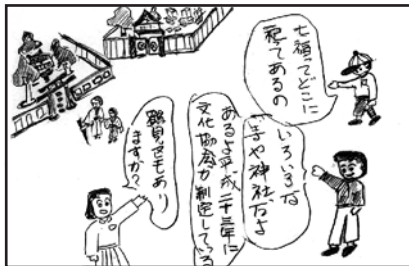 七福ってどこに
祀ってあるの
いろいろな
お寺や神社だよ
あるよ平成二十三年に
文化協会が制定している
鶴見でもあり
ますか?